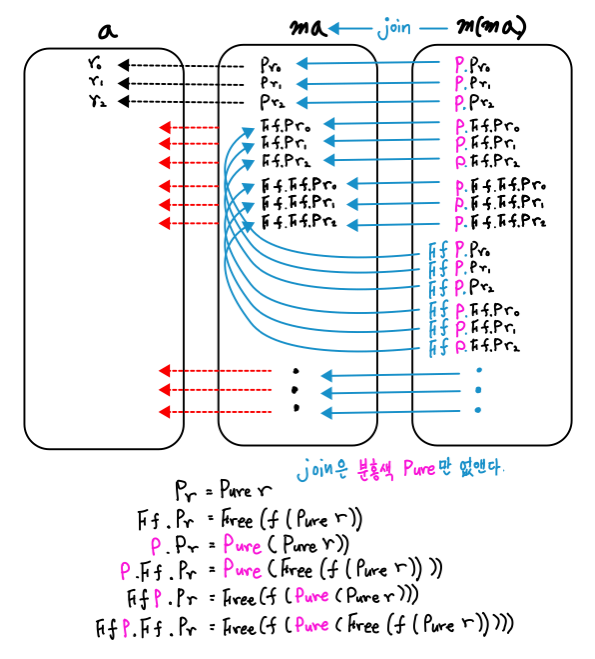 a ma join m(ma)
r₀ Pr₀ P.Pr₀
r₁ Pr₁ P.Pr₁
r₂ Pr₂ P.Pr₂
Ff.Pr₀ P.Ff.Pr₀
Ff.Pr₁ P.Ff.Pr₁
Ff.Pr₂ P.Ff.Pr₂
Ff.Ff.Pr₀ P.Ff.Ff.Pr₀
Ff.Ff.Pr₁ P.Ff.Ff.Pr₁
Ff.Ff.Pr₂ P.Ff.Ff.Pr₂
Ff P.Pr₀
Ff P.Pr₁
Ff P.Pr₂
Ff P.Ff.Pr₀
Ff P.Ff.Pr₁
Ff P.Ff.Pr₂
join은 분홍색 Pure만 없앤다.
Pr = Pure r
Ff.Pr = Free(f(Pure r))
P.Pr = Pure(Pure r))
P.Ff.Pr = Pure(Free(f(Pure r))))
FfP.Pr = Free(f(Pure(Pure r)))
FfP.Ff.Pr = Free(f(Pure(Free(f(Pure r)))))